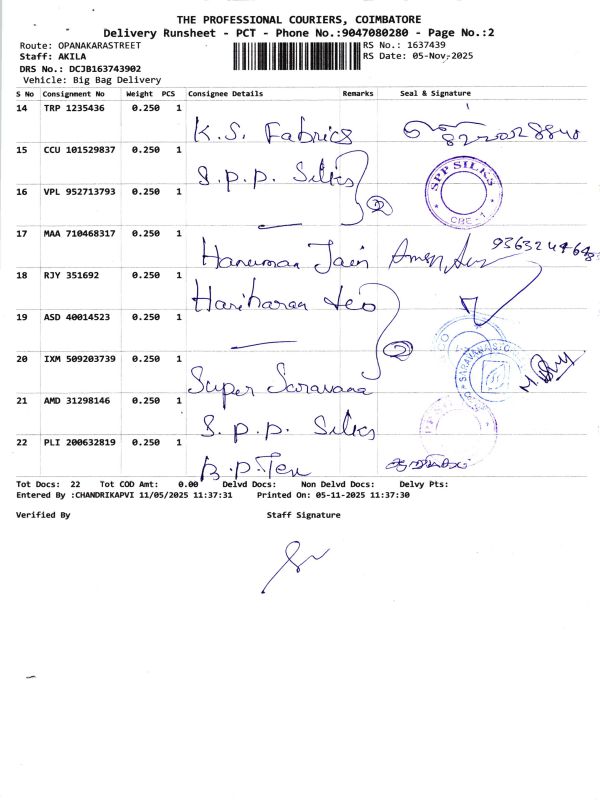 THE PROFESSIONAL COURIERS, COIMBATORE
Delivery Runsheet - PCT - Phone No.:9047080280 - Page No.:2
Route: OPANAKARASTREET
RS No.: 1637439
Staff: AKILA
RS Date: 05-Nov-2025
DRS No.: DCJB163743902
Vehicle: Big Bag Delivery
S No Consignment No Weight PCS Consignee Details Remarks Seal & Signature
14 TRP 1235436 0.250 1
K.S. Fabrics
15 CCU 101529837 0.250 1
S.p.p. Silks
SPP SILKS
CBE-1
16 VPL 952713793 0.250 1
2
17 MAA 710468317 0.250 1
Hanuman Jain
18 RJY 351692 0.250 1
Hariharan
19 ASD 40014523 0.250 1
2
20 IXM 509203739 0.250 1
Super Saravana
21 AMD 31298146 0.250 1
S.p.p. Silks
22 PLI 200632819 0.250 1
B.P.
Tot Docs: 22 Tot COD Amt: 0.00 Delvd Docs: Non Delvd Docs: Delvy Pts:
Entered By :CHANDRIKAPVI 11/05/2025 11:37:31 Printed On: 05-11-2025 11:37:30
Verified By Staff Signature